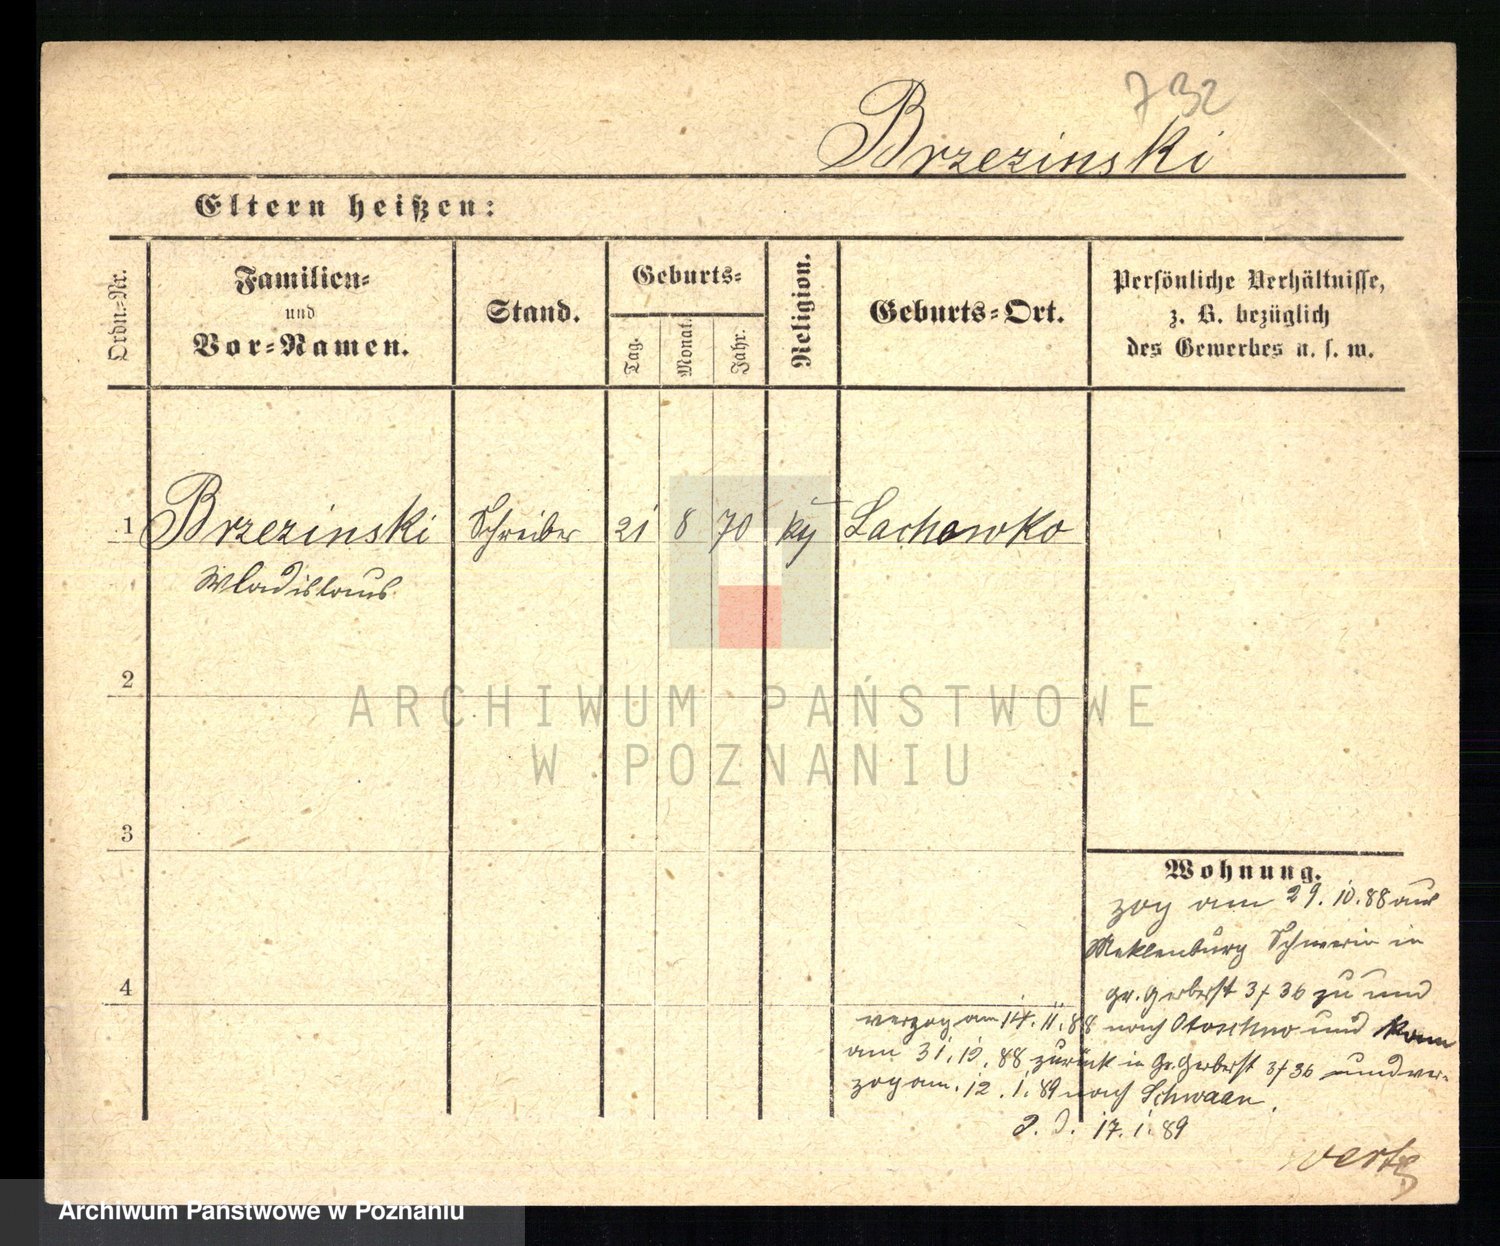 732
Brzezinski
Eltern heißen:
Ordn.-Nr.
Familien-
und
Vor-Namen.
Stand.
Geburts-
Tag.
Monat.
Jahr.
Religion.
Geburts-Ort.
Persönliche Verhältnisse,
z. B. bezüglich
des Gewerbes u. s. w.
1 Brzezinski Schreiber 21 8 70 Lachowko
Wladislaus
2
ARCHIWUM PAŃSTWOWE
W POZNANIU
3
Wohnung.
zog am 29.10.88 aus
Meklenburg Schwerin in
gr. Gerberst 37/36 zu und
verzog am 14.11.88 nach und kam
am 31.12.88 zurück in Gr. Gerberst 37/36 und ver-
zog am 12.1.89 nach Schwaan.
4
17.1.89
Archiwum Państwowe w Poznaniu